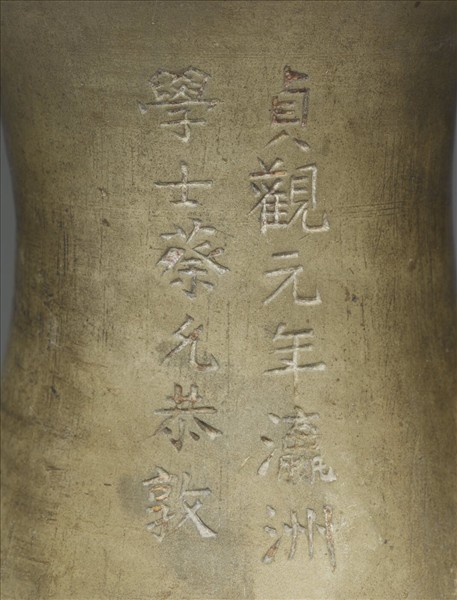 貞觀元年瀛洲
學士蔡允恭敦